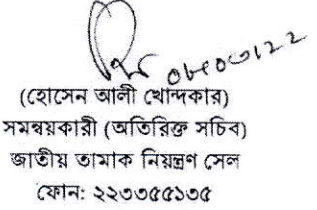 (হোসেন আলী খোন্দকার)
সমন্বয়কারী (অতিরিক্ত সচিব)
জাতীয় তামাক নিয়ন্ত্রণ সেল
ফোন: ২২৩৩৫৫১৩৫